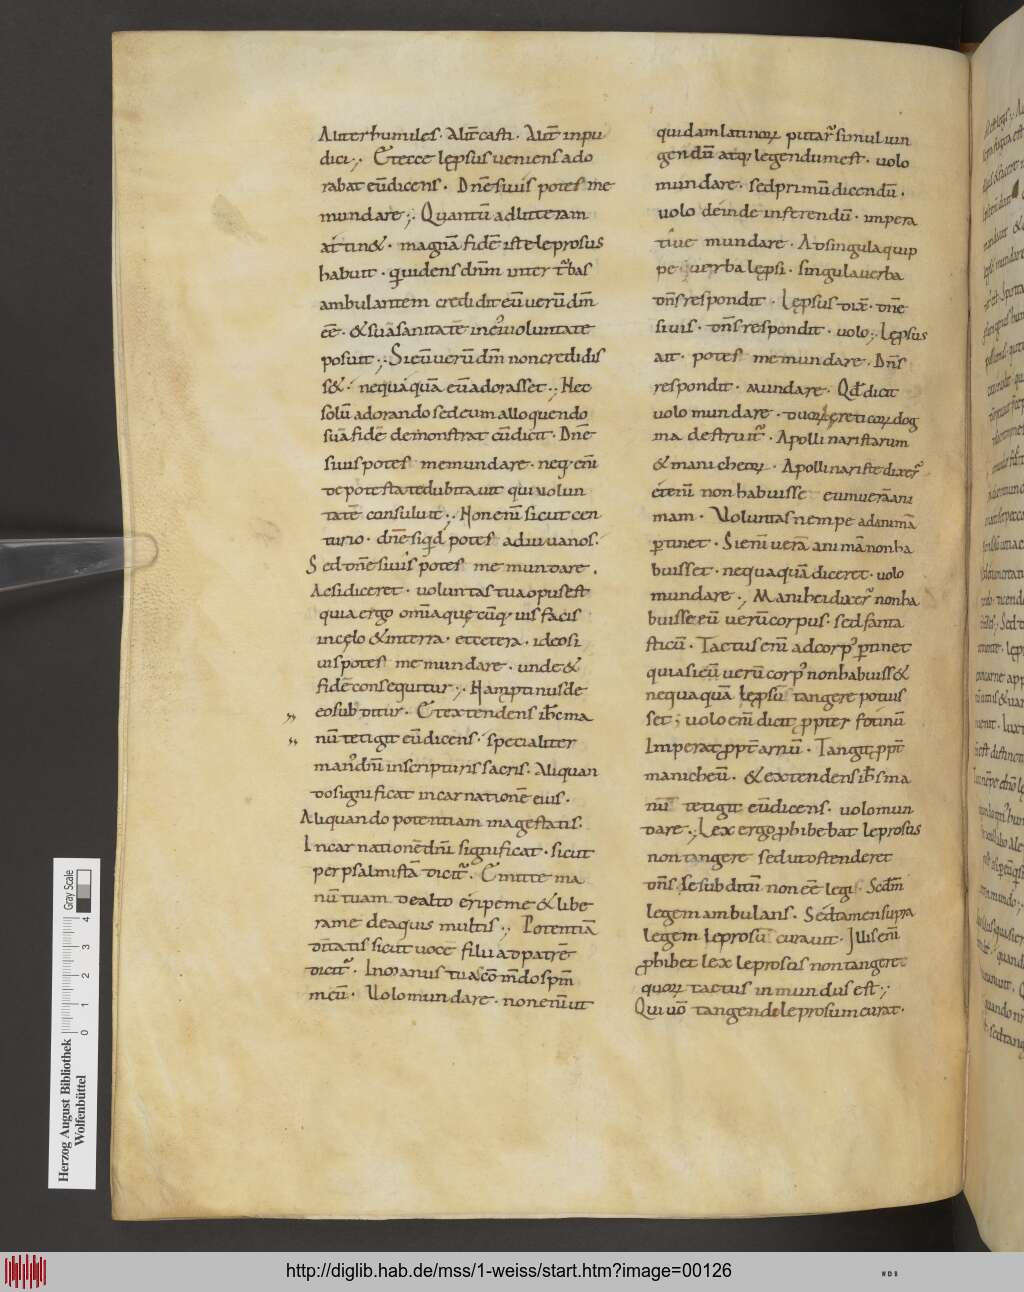 Aliter humiles. Alit̄ casti. Alit̄ inpu
dici; Et ecce lęp̄sus veniens ado
rabat eū dicens. Dn̄e si uis potes me
mundare; Quantū ad litteram
attin&. magnā fidē iste leprosus
habuit. qui dens dn̄m inter t̄bas
ambulantem credidit eū uerū dm̄
ēē. & suā sanitatē in ei' uoluntate
posuit; Si eū uerū dm̄ non credidis
s&. nequaquā eū adorass&; Nec
solū adorando sed eum alloquendo
suā fidē demonstrat cū dicit. Dn̄e
si uis potes me mundare. neq; enī
de potestate dubitauit qui uolun
tatē consuluit; Non enī sicut cen
turio. dn̄e siqd potes adiuua nos.
Sed dn̄e si uis potes me mundare.
Ac si diceret. uoluntas tua opus est
quia ergo omīa quęcūq; uis facis
in cęlo & in terra. et cetera. ideo si
uis potes me mundare. unde &
fidē consequitur; Nam ptinus de
eo subditur. Et extendens ih̄c ma
nū tetigit eū dicens. specialiter
man' dn̄i in scripturis sacris. Aliquan
do significat incarnationē eius.
Aliquando potentiam magestatis.
Incarnationē dn̄i significat. sicut
per psalmistā dicit̄. Emitte ma
nū tuam de alto eripe me & libe
ra me de aquis multis; Potentiā
diītatis sicut uoce filii ad patrē
dicit̄. In manus tuas cōm̄do sp̄m
meū. Uolo mundare. non enī ut
quidam latinoꝝ putar̄ simul iun
gendū atq; legendum est. uolo
mundare. sed primū dicendū.
uolo deinde inferendū. impera
tiue mundare. Ad singula quip
pe uerba lęp̄si. singula uerba
dn̄s respondit. Lęp̄sus dix̄. dn̄e
si uis. dn̄s respondit. uolo; Lęp̄sus
ait. potes me mundare. Dn̄s
respondit. mundare. Qd̄ dicit
uolo mundare. duoꝝ ereticoꝝ dog
ma destruit̄. Apollinaristarum
& manicheoꝝ. Apollinariste dixer̄
c̄ enī non habuisse eum uerā ani
mam. Uoluntas nempe ad animā
ꝑtinet. Si enī uerā animā non ha
buisset. nequaquā diceret. uolo
mundare; Manihei dixer̄ non ha
buisse eū uerū corpus. sed fanta
sticū. Tactus enī ad corp' ꝑtinet
quia si eū uerū corp' non habuiss&
nequaquā lep̄sū tangere potuis
set; uolo enī dicit ꝓpter fotinū
Imperat ꝓpt̄ arriū. Tangit ꝓpt̄
manicheū. & extendens ih̄s ma
nū tetigit eū dicens. uolo mun
dare; Lex ergo ꝓhibebat leprosus
non tangere sed ut ostenderet
dn̄s se subditū non eē legi. Sedm̄
legem ambulans. Sed tamen supra
legem leprosū curauit. Illis enī
ꝓhibet lex leprosus non tangere
quoꝝ tactus inmundus est;
Qui uō tangendo leprosum curat.
Herzog August Bibliothek
Wolfenbüttel
0 1 2 3 4
Gray Scale
http://diglib.hab.de/mss/1-weiss/start.htm?image=00126